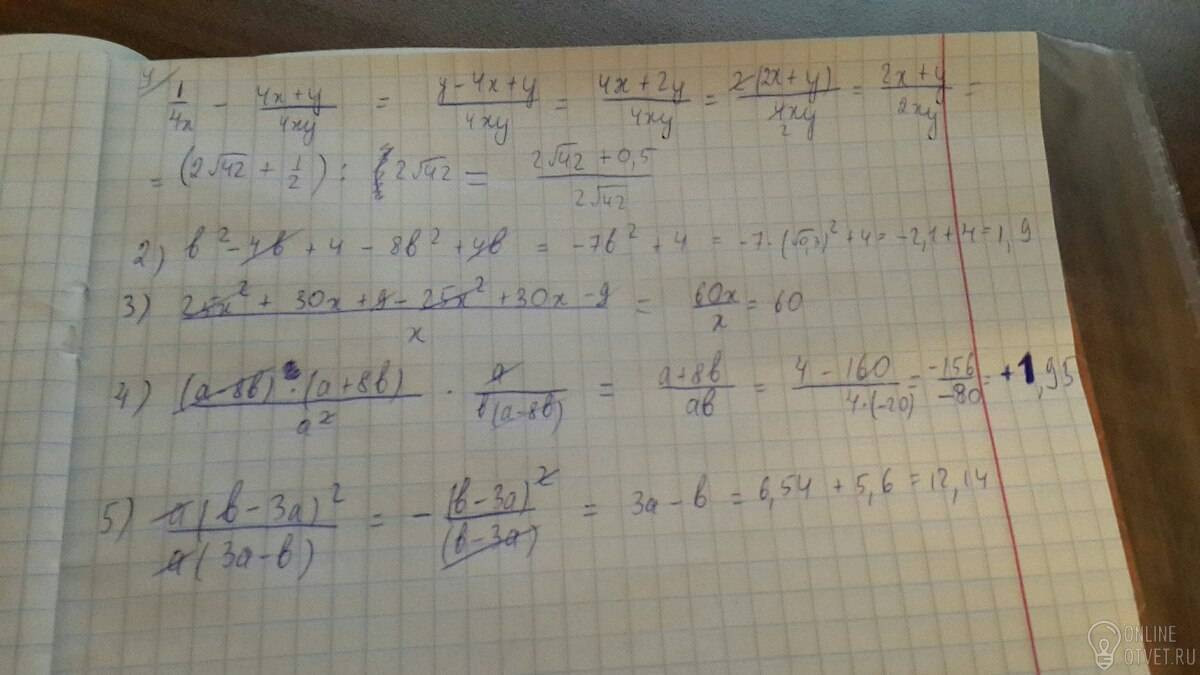 1/ 1/4x - (4x+y)/4xy = (y-4x+y)/4xy = (4x+2y)/4xy = 2(2x+y)/4xy 2 = (2x+y)/2xy =
= (2√42 + 1/2) : 2√42 = (2√42 + 0,5)/2√42
2) b² - 4b + 4 - 8b² + 4b = -7b² + 4 = -7·(√0,3)² + 4 = -2,1 + 4 = 1,9
3) (25x² + 30x + 9 - 25x² + 30x - 9)/x = 60x/x = 60
4) (a-8b)·(a+8b)/a² · a/b(a-8b) = (a+8b)/ab = (4-160)/4·(-20) = -156/-80 = +1,95
5) a(b-3a)²/a(3a-b) = -(b-3a)²/(b-3a) = 3a-b = 6,54 + 5,6 = 12,14
ONLINE
OTVET.RU